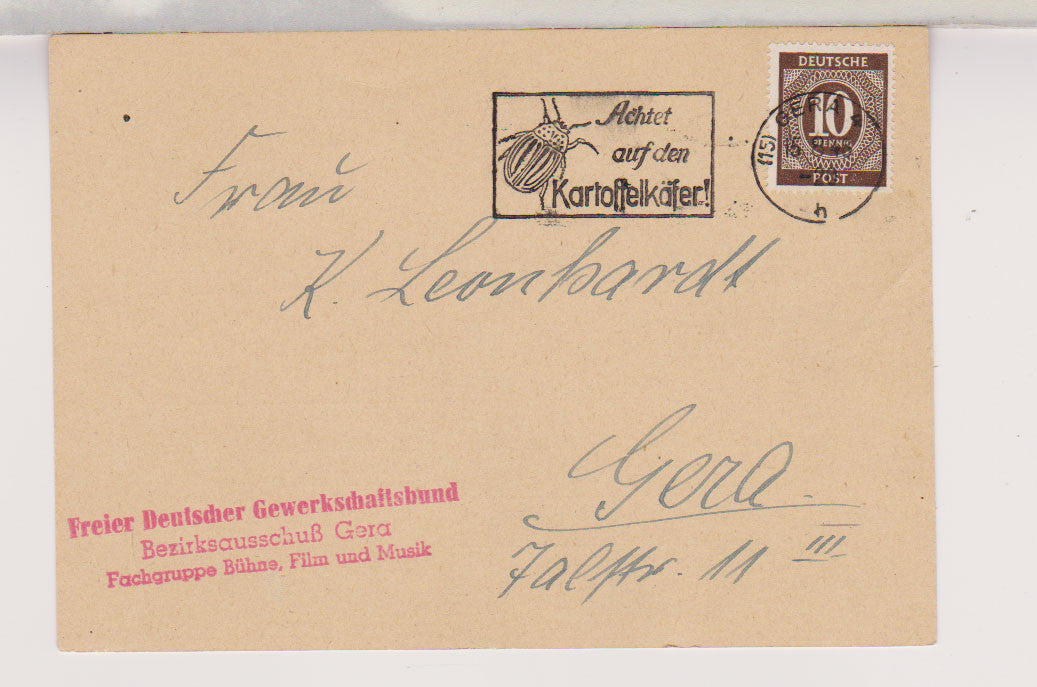 DEUTSCHE
10
PFENNIG
POST
(15) GERA
h
Achtet
auf den
Kartoffelkäfer!
Frau
K. Leonhardt
Gera.
Talstr. 11 III
Freier Deutscher Gewerkschaftsbund
Bezirksausschuß Gera
Fachgruppe Bühne, Film und Musik